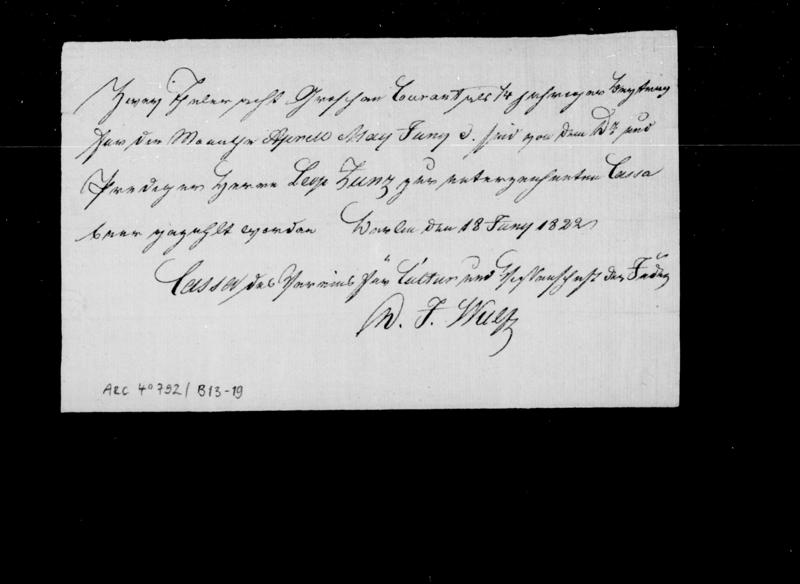 Zwey Thaler acht Groschen Courant als 1/4 jähriger Beytrag
für die Monathe Aprill May Juny d. J. sind von dem Dr. und
Prediger Herrn Leop Zunz zur unterzeichneten Cassa
baar gezahlt worden Berlin den 18 Juny 1822
Cassa des Vereins für Cultur und Wissenschaft der Juden
J. Wulff
ARC 4° 792 / B13-19